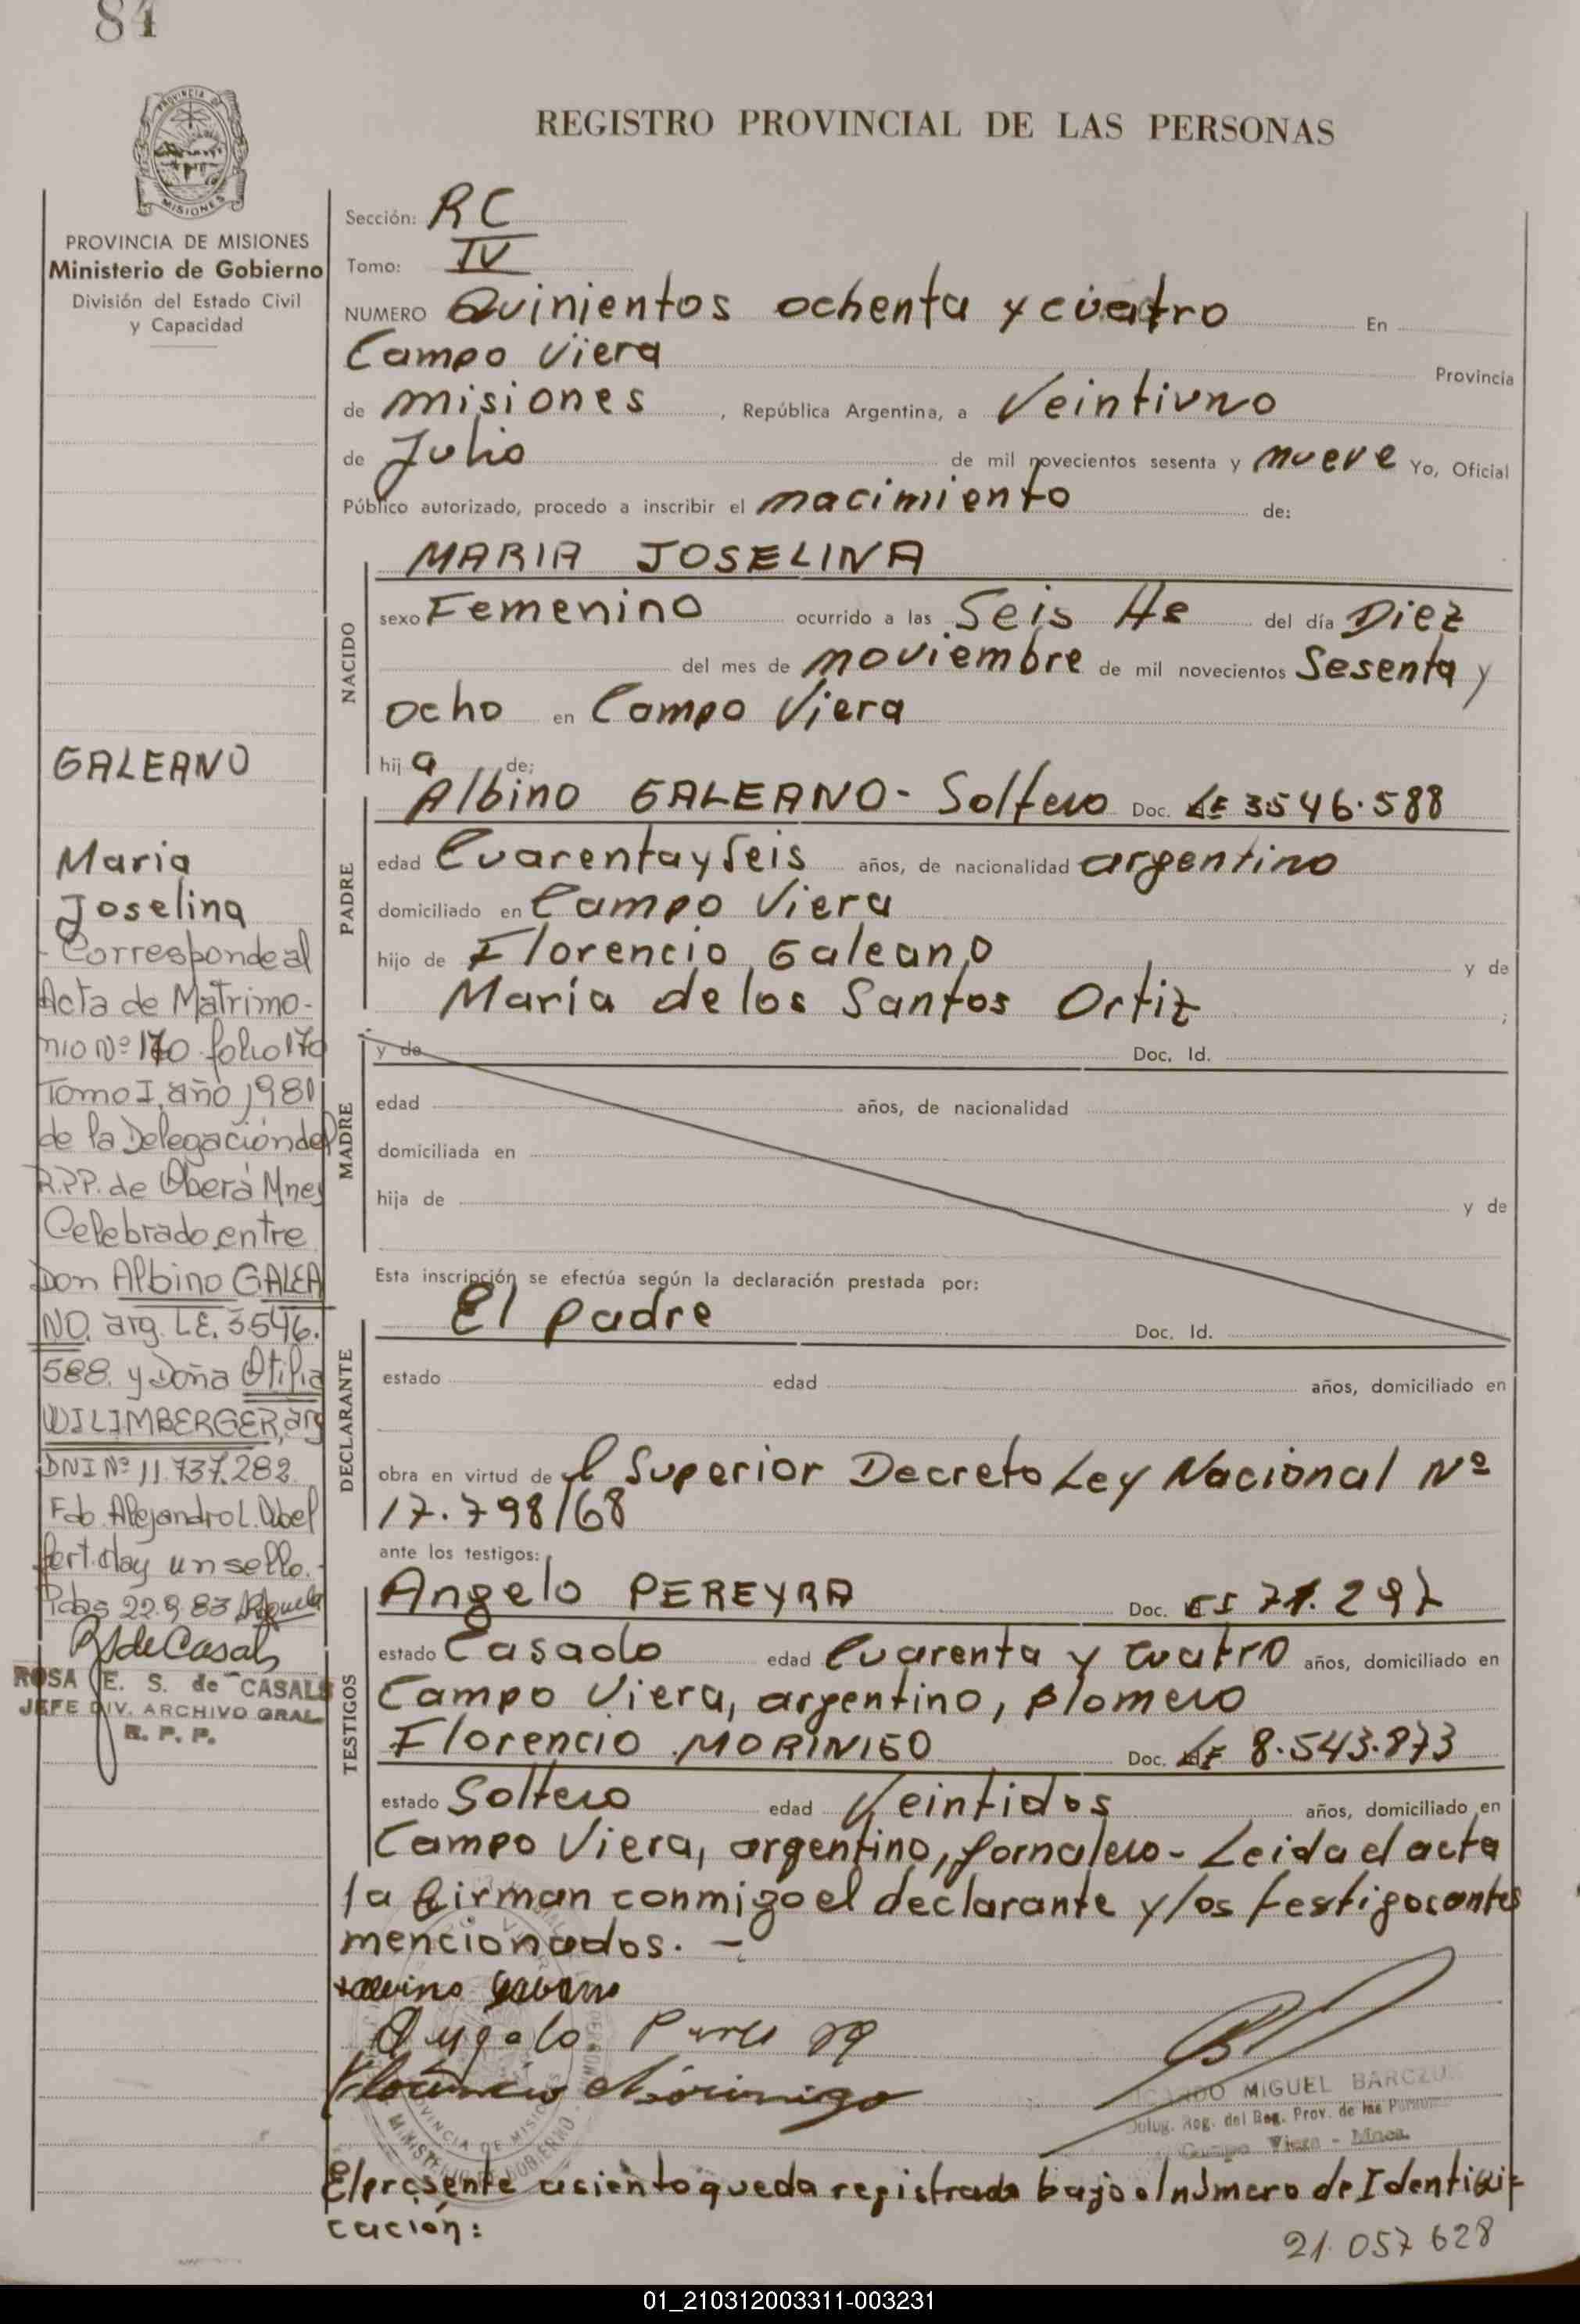 84
PROVINCIA DE
MISIONES
PROVINCIA DE MISIONES
Ministerio de Gobierno
División del Estado Civil
y Capacidad
REGISTRO PROVINCIAL DE LAS PERSONAS
Sección: RC
Tomo: IV
NUMERO Quinientos ochenta y cuatro En
Campo Viera Provincia
de misiones, República Argentina, a Veintiuno
de Julio de mil novecientos sesenta y nueve Yo, Oficial
Público autorizado, procedo a inscribir el nacimiento de:
NACIDO
MARIA JOSELINA
sexo Femenino ocurrido a las Seis Hs del día Diez
del mes de noviembre de mil novecientos Sesenta y
ocho en Campo Viera
hija de:
PADRE
Albino GALEANO - Soltero Doc. LE 3546.588
edad Cuarenta y Seis años, de nacionalidad argentino
domiciliado en Campo Viera
hijo de Florencio Galeano y de
María de los Santos Ortiz ;
MADRE
y de Doc. Id.
edad años, de nacionalidad
domiciliada en
hija de y de
Esta inscripción se efectúa según la declaración prestada por:
DECLARANTE
El padre Doc. Id.
estado edad años, domiciliado en
obra en virtud de el Superior Decreto Ley Nacional Nº
17.798/68
ante los testigos:
TESTIGOS
Angelo PEREYRA Doc. 71.297
estado Casado edad Cuarenta y cuatro años, domiciliado en
Campo Viera, argentino, plomero
Florencio MORINIGO Doc. LE 8.543.873
estado Soltero edad Veintidos años, domiciliado en
Campo Viera, argentino, jornalero - Leida el acta
la firman conmigo el declarante y los testigos antes
mencionados. -
Florencio Morinigo
MIGUEL BARCZUK
Deleg. Reg. del Reg. Prov. de las Personas
Campo Viera - Mnes.
PROVINCIA DE MISIONES
MINISTERIO DE GOBIERNO
El presente asiento queda registrado bajo el número de Identifi-
cación:
21.057 628
GALEANO
Maria
Joselina
- Corresponde al
Acta de Matrimo-
nio Nº 170 folio 170
Tomo I, año 1981
de la Delegación del
R.P.P. de Oberá Mnes
Celebrado entre
Don Albino GALEA
NO, arg. L.E. 3546.
588. y Doña Otilia
WILIMBERGER, arg
DNI Nº 11.737.282.
Fdo. Alejandro L.
Hay un sello. -
Pdas 22.9.83
R S de Casals
ROSA E. S. de CASALS
JEFE DIV. ARCHIVO GRAL.
R. P. P.
01_210312003311-003231